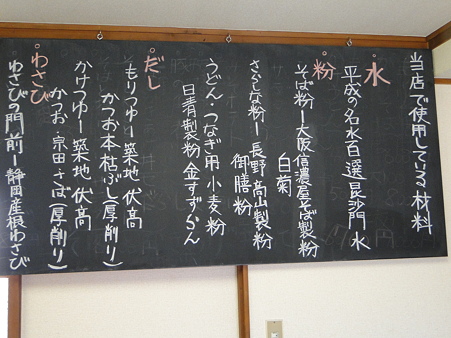 当店で使用している材料
水
平成の名水百選毘沙門水
粉
そば粉ー大阪信濃屋そば製粉
白菊
さらしな粉ー長野高山製粉
御膳粉
うどん・つなぎ用小麦粉
日清製粉金すずらん
だし
もりつゆー築地伏高
かつお本枯ぶし(厚削り)
かけつゆー築地伏高
かつお・宗田さば(厚削り)
わさび
わさびの門前ー静岡産根わさび